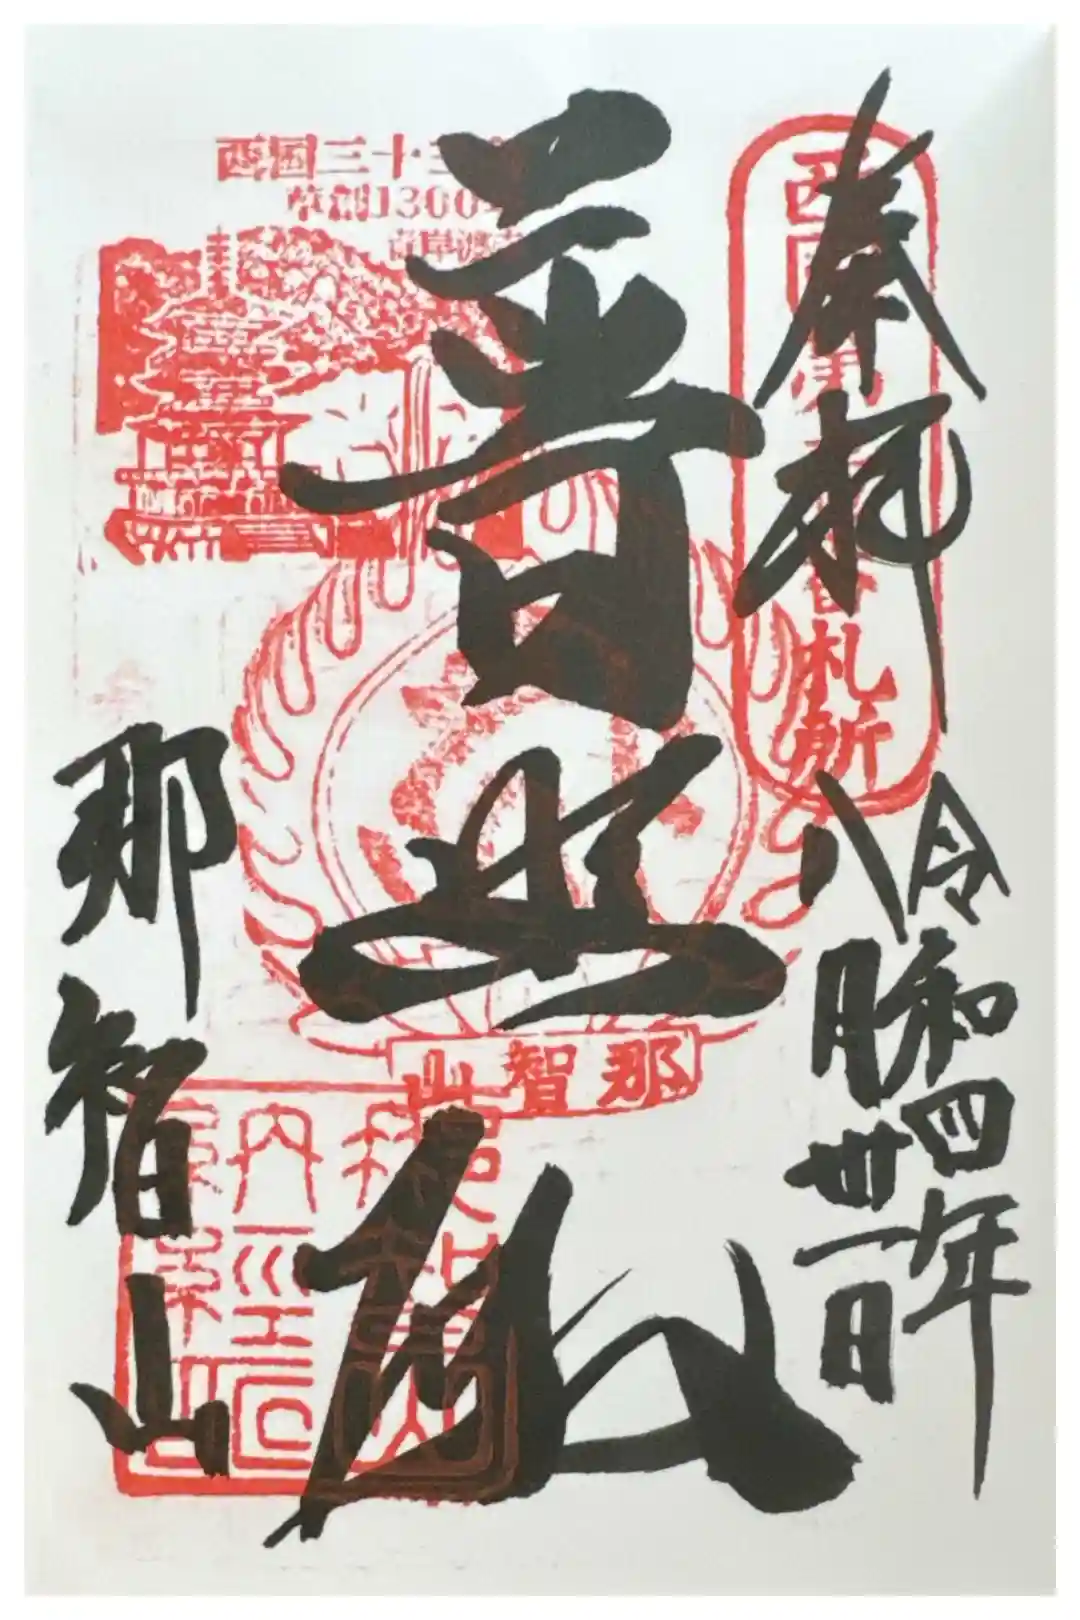 奉拝
西国第一番札所
令和四年
八月卅一日
普照殿
西国三十三
草創1300
青岸渡寺
那智山
那智山